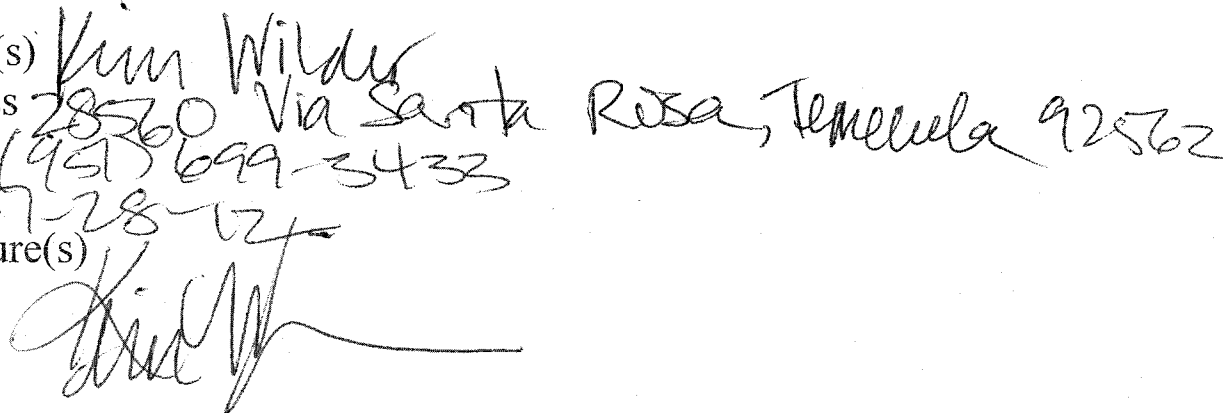 (s) Kim Wilder
s 28560 Via Santa Rosa, Temecula 92562
(951) 699-3433
7-28-12
ure(s)